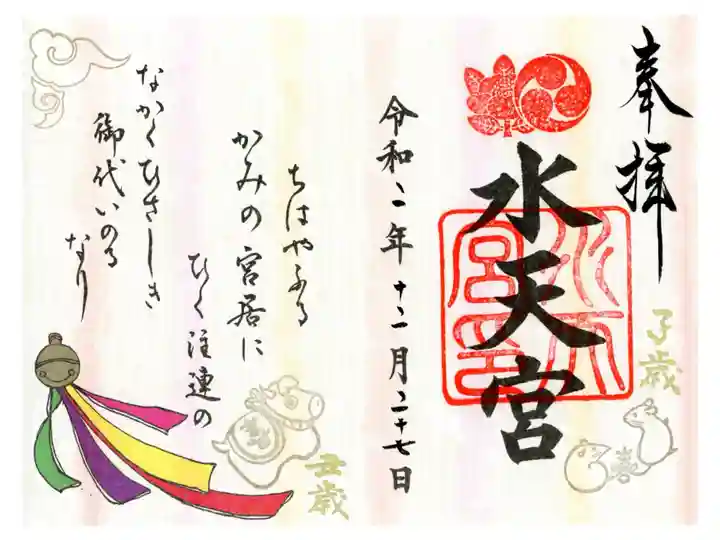 奉拝
水天宮
水天宮印
子歳
令和二年十二月二十七日
ちはやふる
かみの宮居に
ひく注連の
なかくひさしき
御代いのる
なり
丑歳